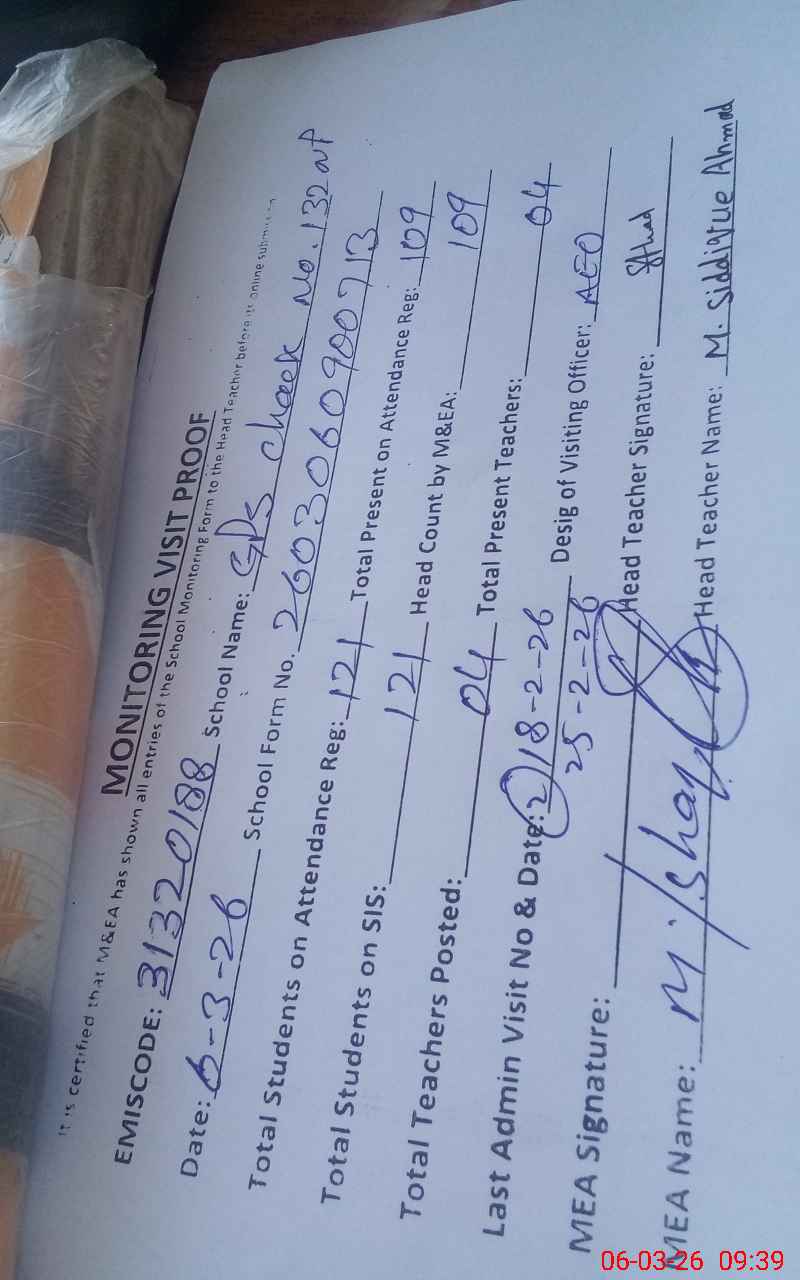 MONITORING VISIT PROOF
It is certified that M&EA has shown all entries of the School Monitoring Form to the Head Teacher before its online submission
EMISCODE: 31320188 School Name: GPS chack No. 132 NP
Date: 6-3-26 School Form No. 2603060900713
Total Students on Attendance Reg: 121 Total Present on Attendance Reg: 109
Total Students on SIS: 121 Head Count by M&EA: 109
Total Teachers Posted: 04 Total Present Teachers: 04
Last Admin Visit No & Date: 2) 18-2-26 Desig of Visiting Officer: AEO
25-2-26
MEA Signature: Head Teacher Signature:
MEA Name: Head Teacher Name: M. Siddique Ahmad
06-03-26 09:39